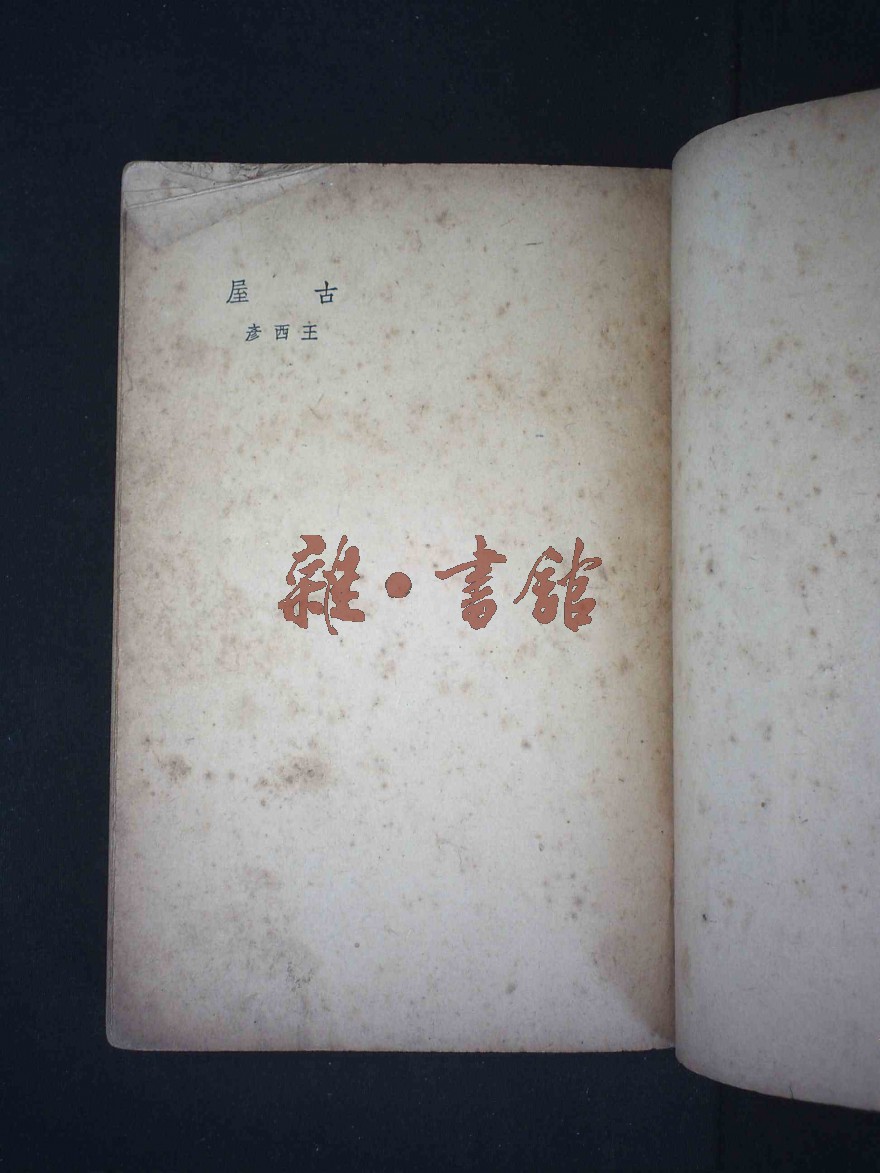 古屋
王西彥
雜·書館